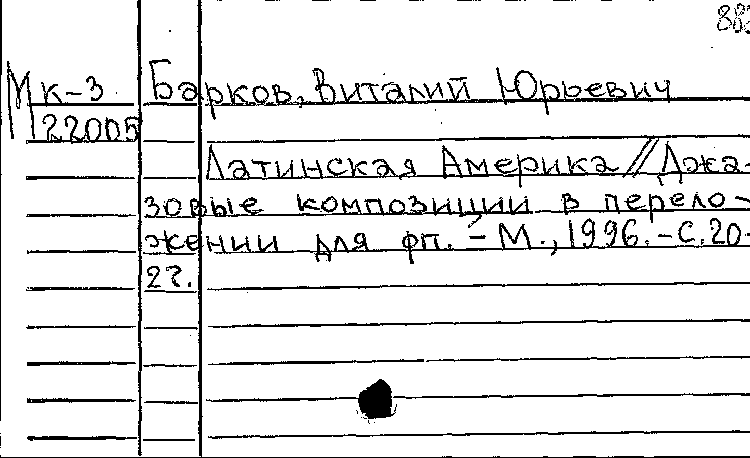 883
Мк-3 Барков, Виталий Юрьевич
22005
Латинская Америка // Джа-
зовые композиции в перело-
жении для фп. - М., 1996. - С. 20-
22.